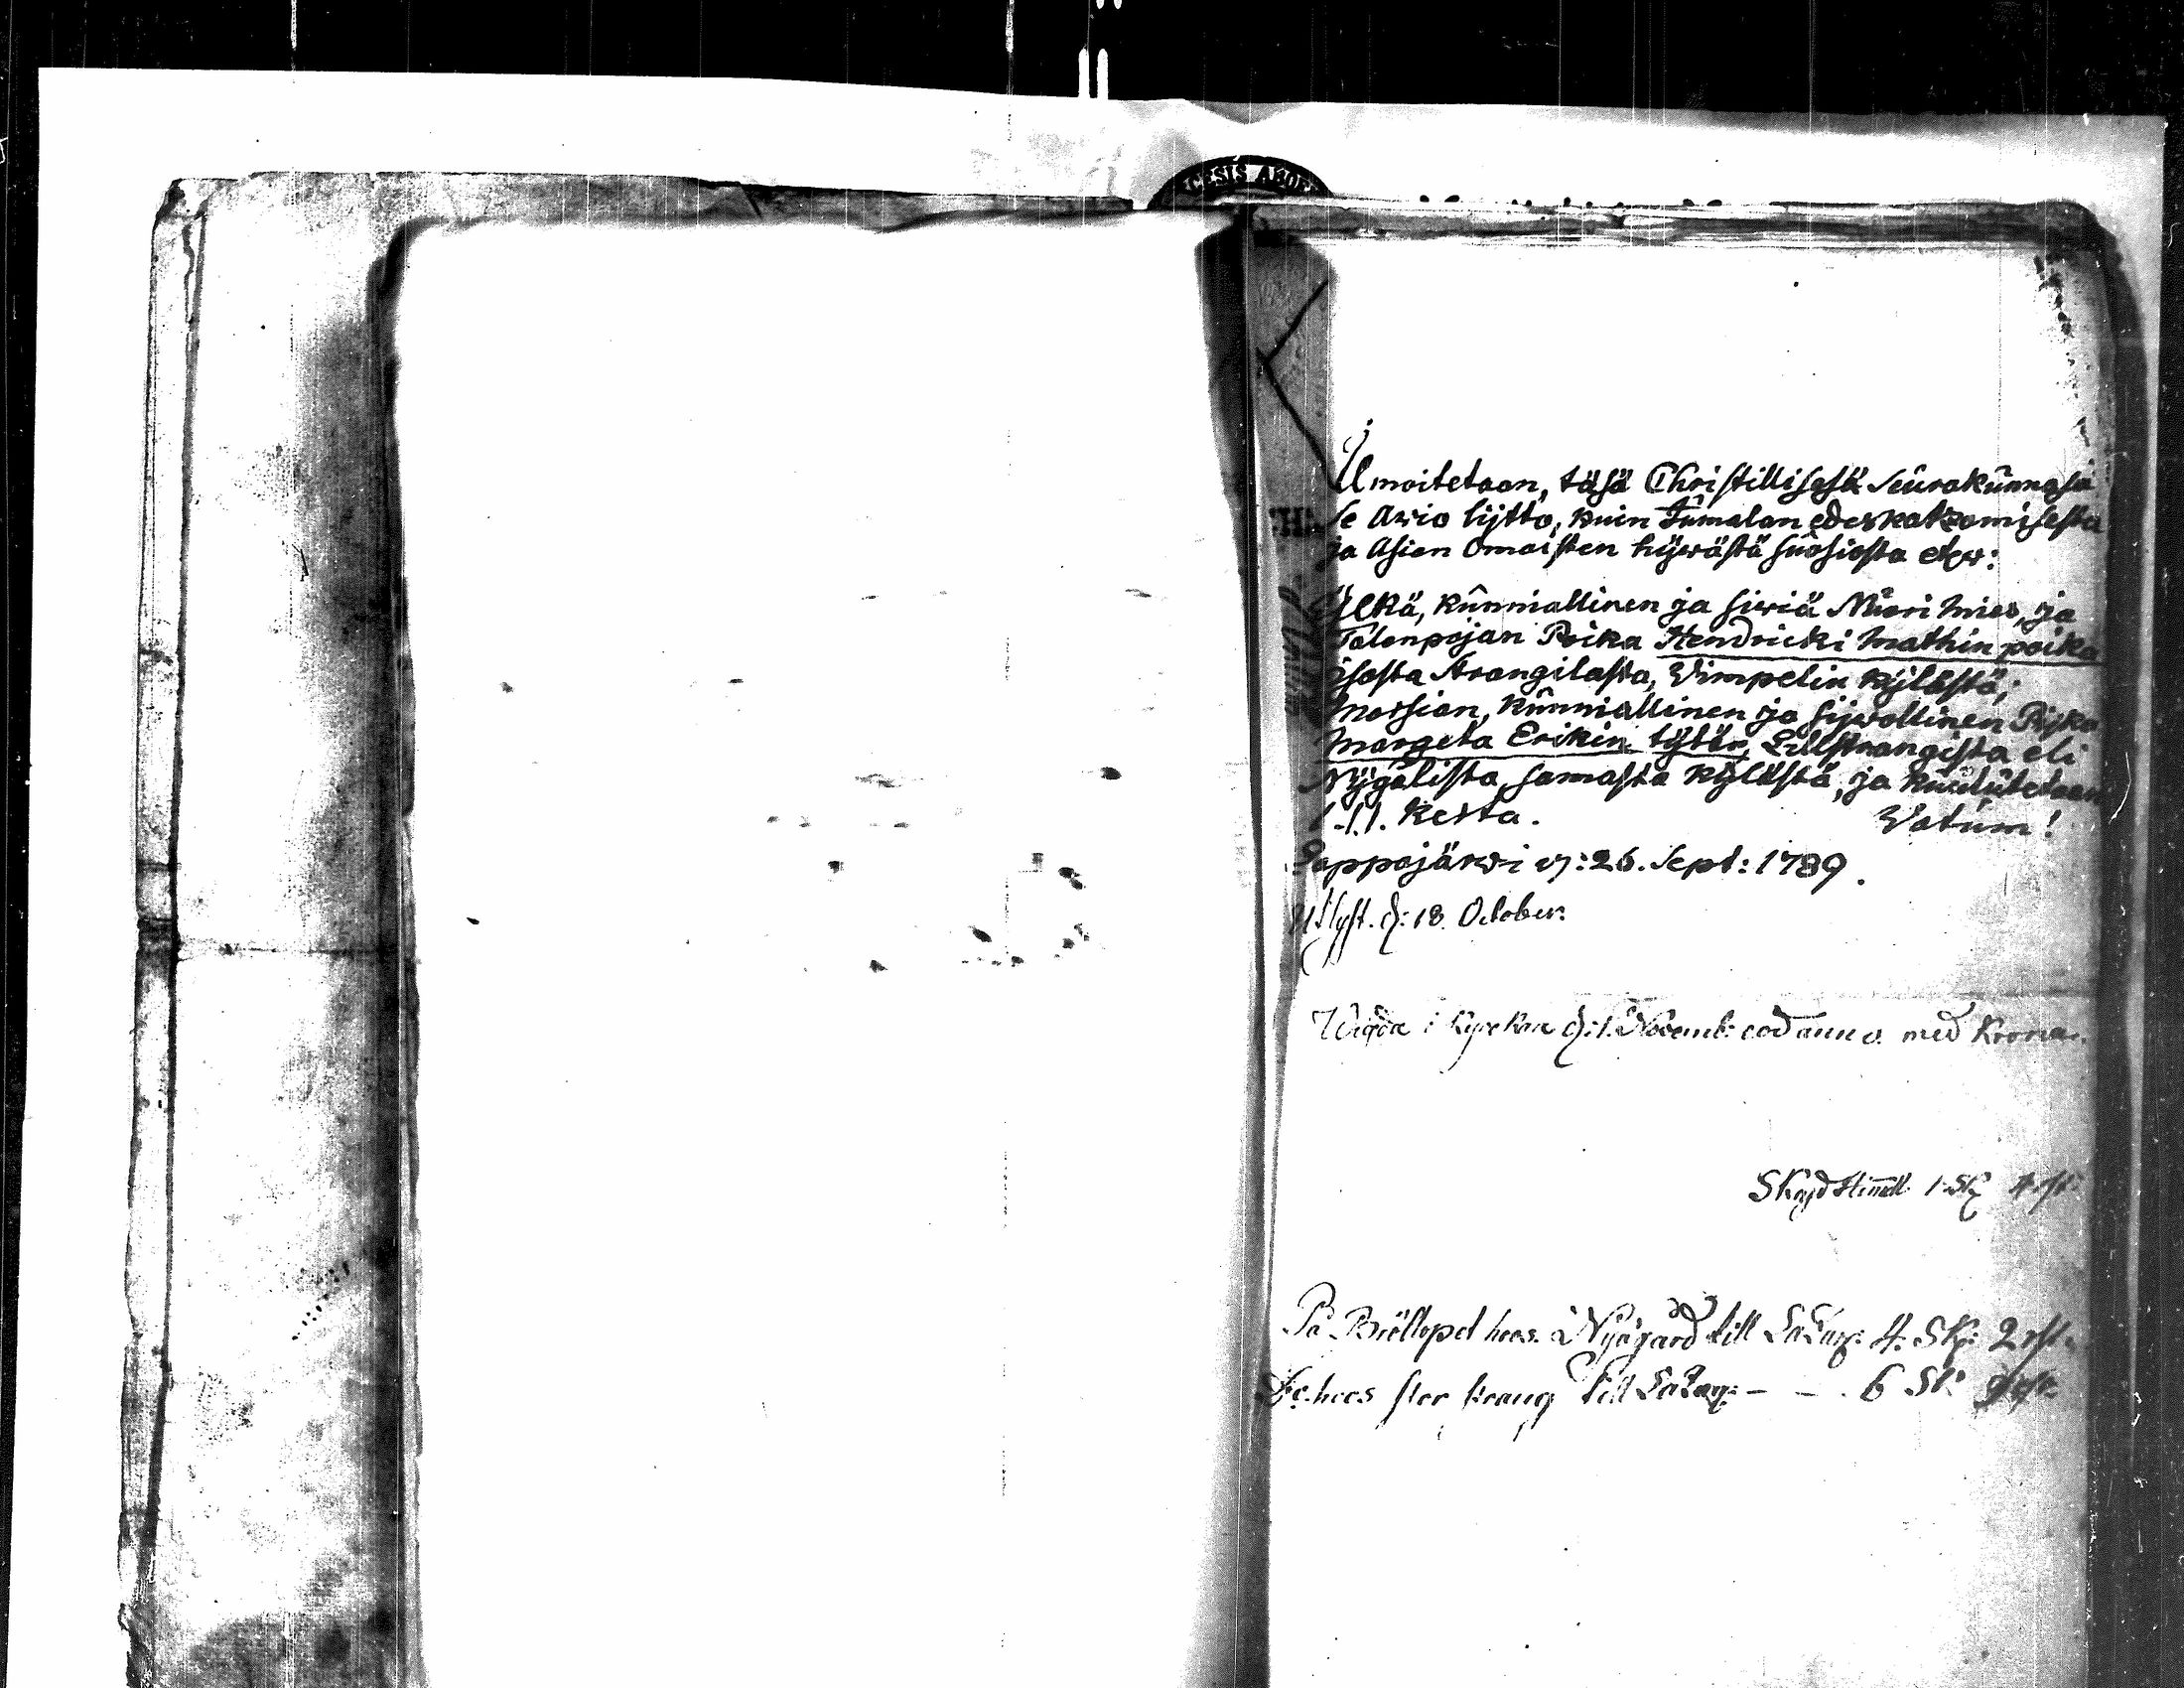 CESIS ABOE
Ilmoitetaan, täsä Christillisesä Seurakûnnasa
se Awio lijtto, kuin Jumalan edeskatzomisesta
ja Asian omaisten hywästä suosiosta etzr:
Ylkä, kûnniallinen ja siwiä Nuori mies, ja
Talonpojan Poika Hendricki Mathin poika
isosta Strangilasta, Wimpelin kylästä;
Morsian, kûnniallinen ja sijwollinen Pijka
Margeta Erikin tytär, Lillstrangista eli
Nygålista, samasta kylästä, ja kuulutetaan
1.sl. kerta. Votum!
Lappajärwi d: 26. Sept: 1789.
Utlyst. d: 18. October.
Wigda i Kyrckan d: 1. Novemb: eod anno. med krona.
1 Sk
På Bröllopet hos Nygård till 4. Sk: 2 rst.
hos stor strang till — — . 6 Sk: